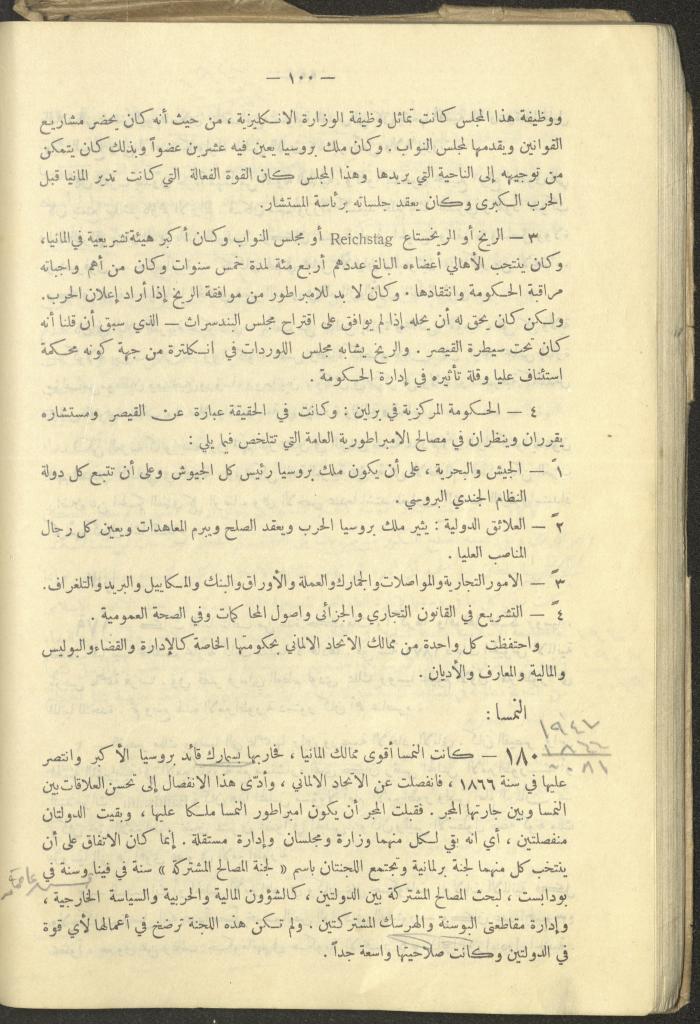 — ١٠٠ —
ووظيفة هذا المجلس كانت تماثل وظيفة الوزارة الانكليزية ، من حيث أنه كان يحضر مشاريع
القوانين ويقدمها لمجلس النواب . وكان ملك بروسيا يعين فيه عشرين عضواً وبذلك كان يتمكن
من توجيهه إلى الناحية التي يريدها وهذا المجلس كان القوة الفعالة التي كانت تدير المانيا قبل
الحرب الكبرى وكان يعقد جلساته برئاسة المستشار.
٣ — الريخ أو الريخستاغ Reichstag أو مجلس النواب وكان أكبر هيئة تشريعية في المانيا،
وكان ينتخب الأهالي أعضاءه البالغ عددهم أربع مئة لمدة خمس سنوات وكان من أهم واجباته
مراقبة الحكومة وانتقادها . وكان لا بد للامبراطور من موافقة الريخ إذا أراد إعلان الحرب.
ولكن كان يحق له أن يحله إذا لم يوافق على اقتراح مجلس البندسراث — الذي سبق أن قلنا أنه
كان تحت سيطرة القيصر . والريخ يشابه مجلس اللوردات في انكلترة من جهة كونه محكمة
استئناف عليا وقلة تأثيره في إدارة الحكومة .
٤ — الحكومة المركزية في برلين : وكانت في الحقيقة عبارة عن القيصر ومستشاره
يقرران وينظران في مصالح الامبراطورية العامة التي تتلخص فيما يلي :
١ً — الجيش والبحرية ، على أن يكون ملك بروسيا رئيس كل الجيوش وعلى أن تتبع كل دولة
النظام الجندي البروسي .
٢ً — العلائق الدولية : يثير ملك بروسيا الحرب ويعقد الصلح ويبرم المعاهدات ويعين كل رجال
المناصب العليا .
٣ً — الامور التجارية والمواصلات والجمارك والعملة والأوراق والبنك والمكاييل والبريد والتلغراف.
٤ً — التشريع في القانون التجاري والجزائى واصول المحاكمات وفي الصحة العمومية .
واحتفظت كل واحدة من ممالك الاتحاد الالماني بحكومتها الخاصة كالإدارة والقضاء والبوليس
والمالية والمعارف والأديان .
النمسا :
١٩٤٧
١٨٦٦
٠٨١
١٨٠ — كانت النمسا أقوى ممالك المانيا ، فحاربها بسمارك قائد بروسيا الأكبر وانتصر
عليها في سنة ١٨٦٦ ، فانفصلت عن الاتحاد الالماني ، وأدّى هذا الانفصال إلى تحسن العلاقات بين
النمسا وبين جارتها المجر . فقبلت المجر أن يكون امبراطور النمسا ملكا عليها ، وبقيت الدولتان
منفصلتين ، أي انه بقي لكل منهما وزارة ومجلسان وإدارة مستقلة . إنما كان الاتفاق على أن
ينتخب كل منهما لجنة برلمانية وتجتمع اللجنتان باسم « لجنة المصالح المشتركة » سنة في فينا وسنة في
بودابست ، لبحث المصالح المشتركة بين الدولتين ، كالشؤون المالية والحربية والسياسة الخارجية ،
وإدارة مقاطعتى البوسنة والهرسك المشتركتين . ولم تكن هذه اللجنة ترضخ في أعمالها لأي قوة
في الدولتين وكانت صلاحيتها واسعة جداً .